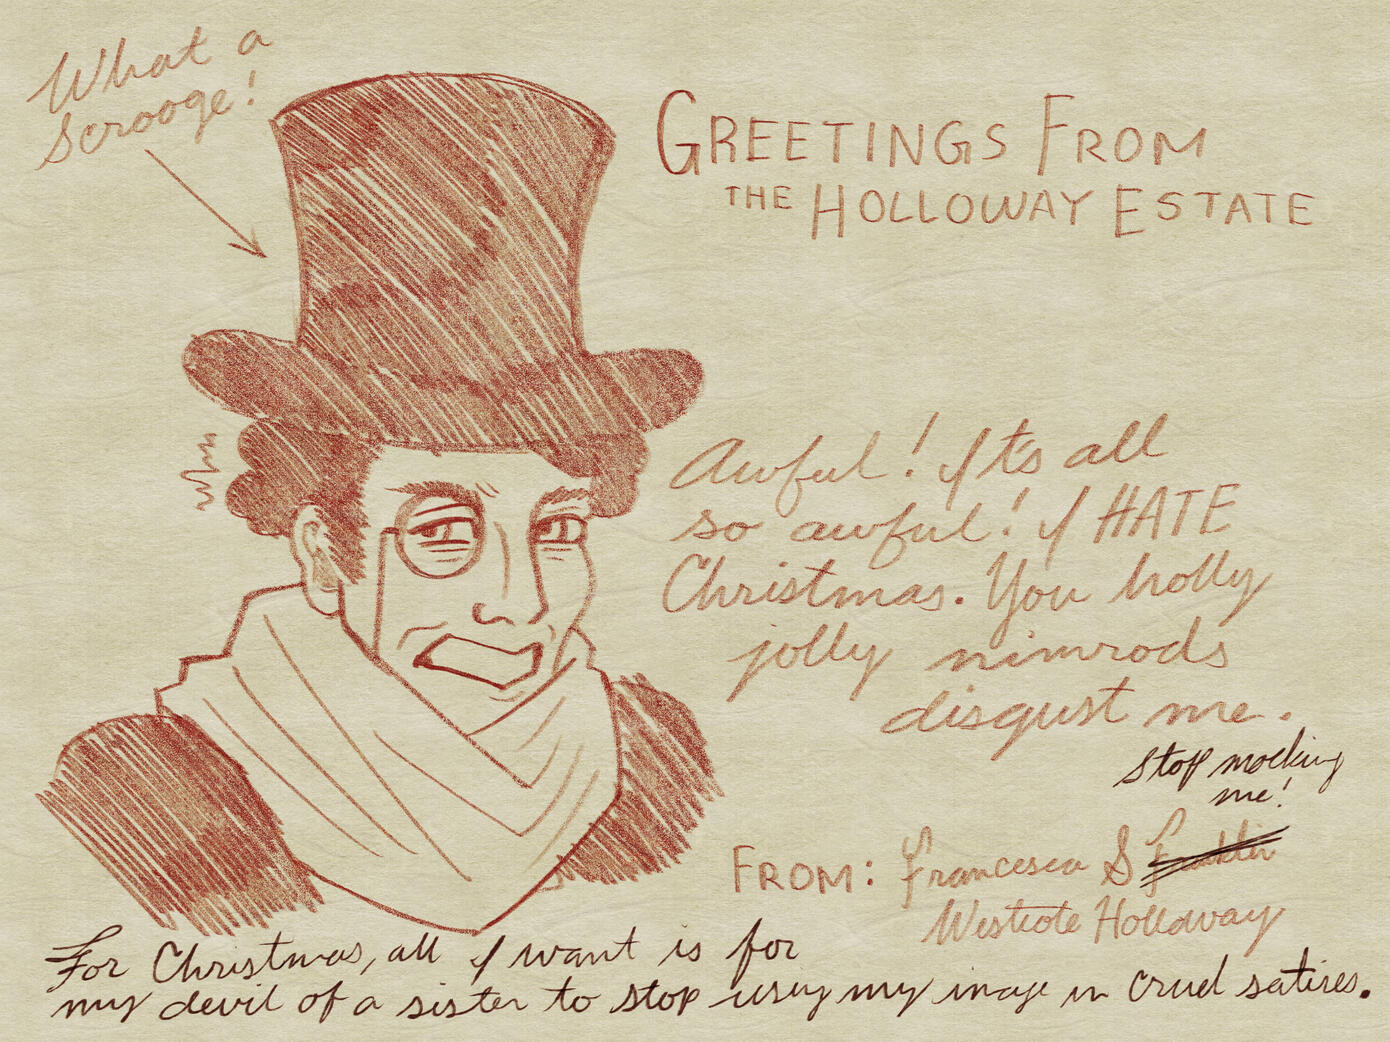 What a
Scrooge!
GREETINGS FROM
THE HOLLOWAY ESTATE
Awful! It's all
so awful! I HATE
Christmas. You holly
jolly nimrods
disgust me.
Stop mocking
me!
FROM: Francesca & Franklin
Westcote Holloway
For Christmas, all I want is for
my devil of a sister to stop using my image in cruel satires.